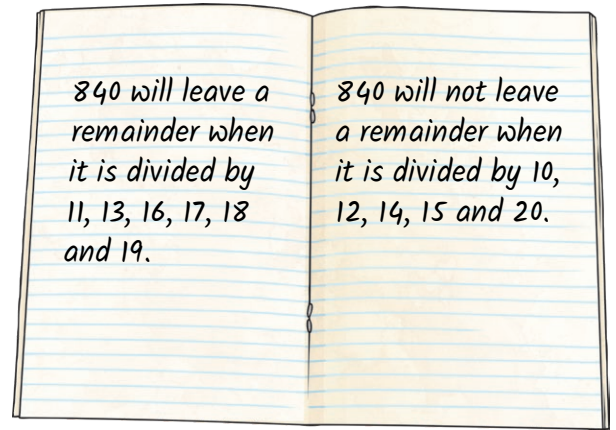 840 will leave a
remainder when
it is divided by
11, 13, 16, 17, 18
and 19.
840 will not leave
a remainder when
it is divided by 10,
12, 14, 15 and 20.